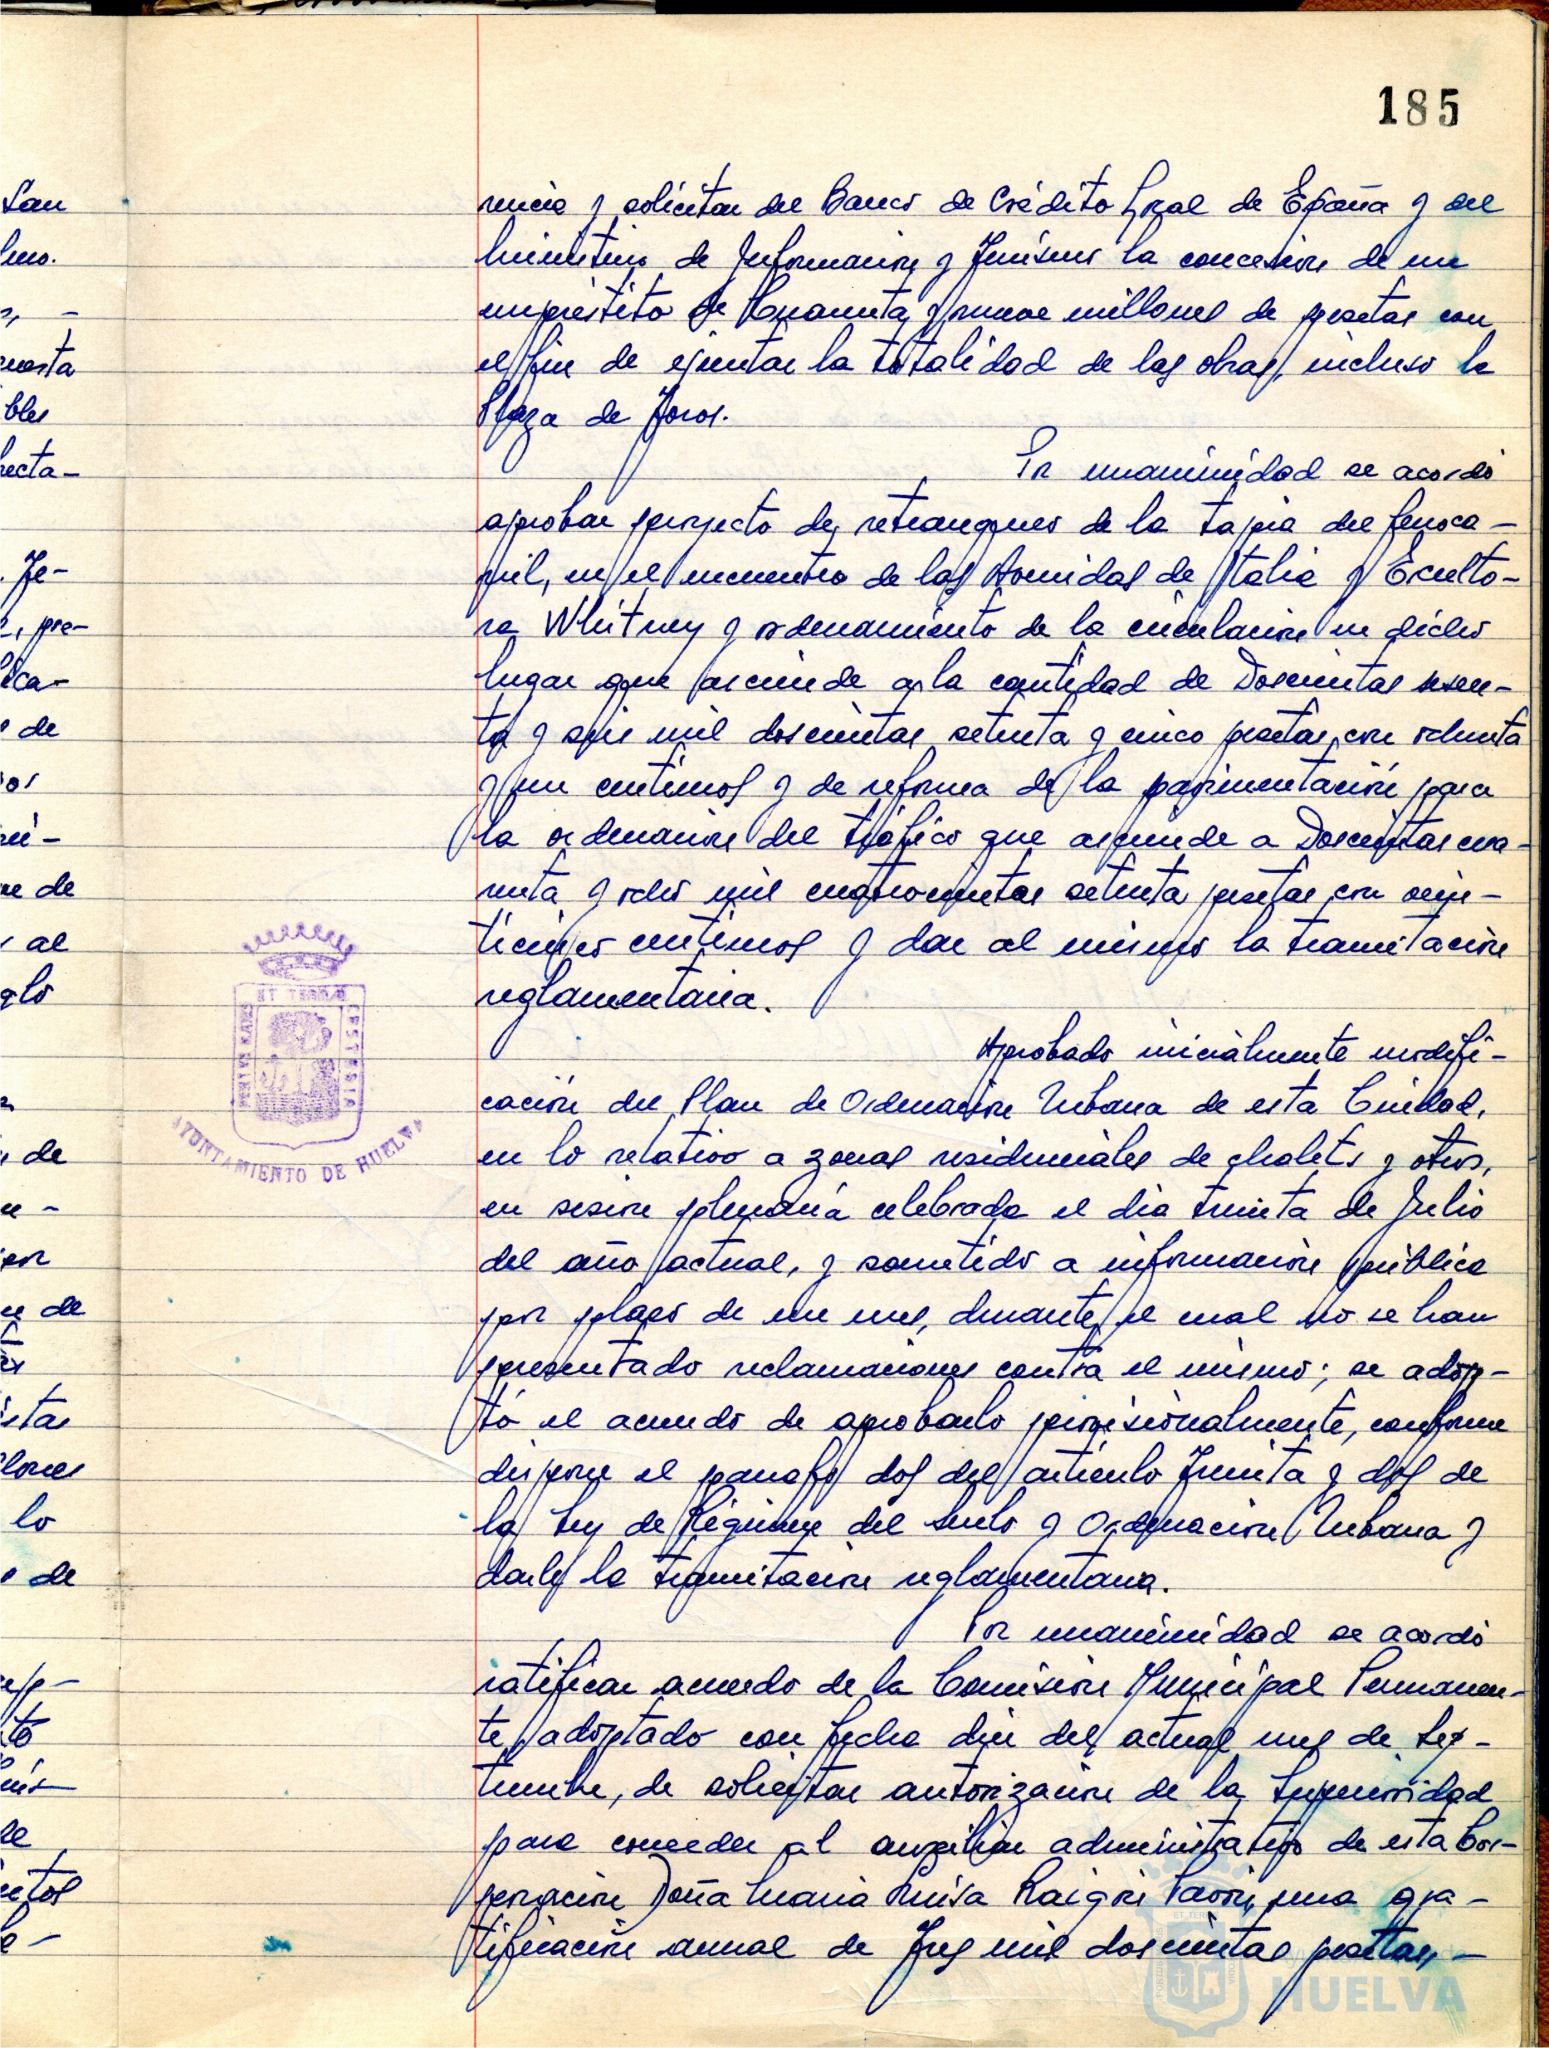 185
rencia y solicitar del Banco de Crédito Local de España y del
Ministerio de Información y Turismo la concesión de un
empréstito de Cuarenta y nueve millones de pesetas con
el fin de ejecutar la totalidad de las obras, incluso la
Plaza de Toros.
Por unanimidad se acordó
aprobar proyecto de retranqueo de la tapia del ferroca-
rril, en el encuentro de las Avenidas de Italia y Esculto-
ra Whitney y ordenamiento de la circulación en dicho
lugar que asciende a la cantidad de Doscientas sesen-
ta y seis mil doscientas setenta y cinco pesetas con ochenta
y un centimos y de reforma de la pavimentación para
la ordenación del tráfico que asciende a Doscientas cua-
renta y ocho mil cuatrocientas setenta pesetas con vein-
ticinco centimos y dar al mismo la tramitación
reglamentaria.
Aprobado inicialmente modifi-
cación del Plan de Ordenación Urbana de esta Ciudad,
en lo relativo a zonas residenciales de chalets y otros,
en sesión plenaria celebrada el dia treinta de Julio
del año actual, y sometido a información pública
por plazo de un mes, durante el cual no se han
presentado reclamaciones contra el mismo; se adop-
tó el acuerdo de aprobarlo provisionalmente, conforme
dispone el parrafo dos del artículo Treinta y dos de
la Ley de Régimen del Suelo y Ordenación Urbana y
darle la tramitación reglamentaria.
Por unanimidad se acordó
ratificar acuerdo de la Comisión Municipal Permanen-
te adoptado con fecha diez del actual mes de Sep-
tiembre, de solicitar autorización de la Superioridad
para conceder al auxiliar administrativo de esta Cor-
poración Doña Maria Luisa Raigón Pavón, una gra-
tificación anual de Tres mil doscientas pesetas, -
AYUNTAMIENTO DE HUELVA
HUELVA
San
cuesta
bles
recta-
. Te-
, pre-
de
de
al
de
de
lo
de